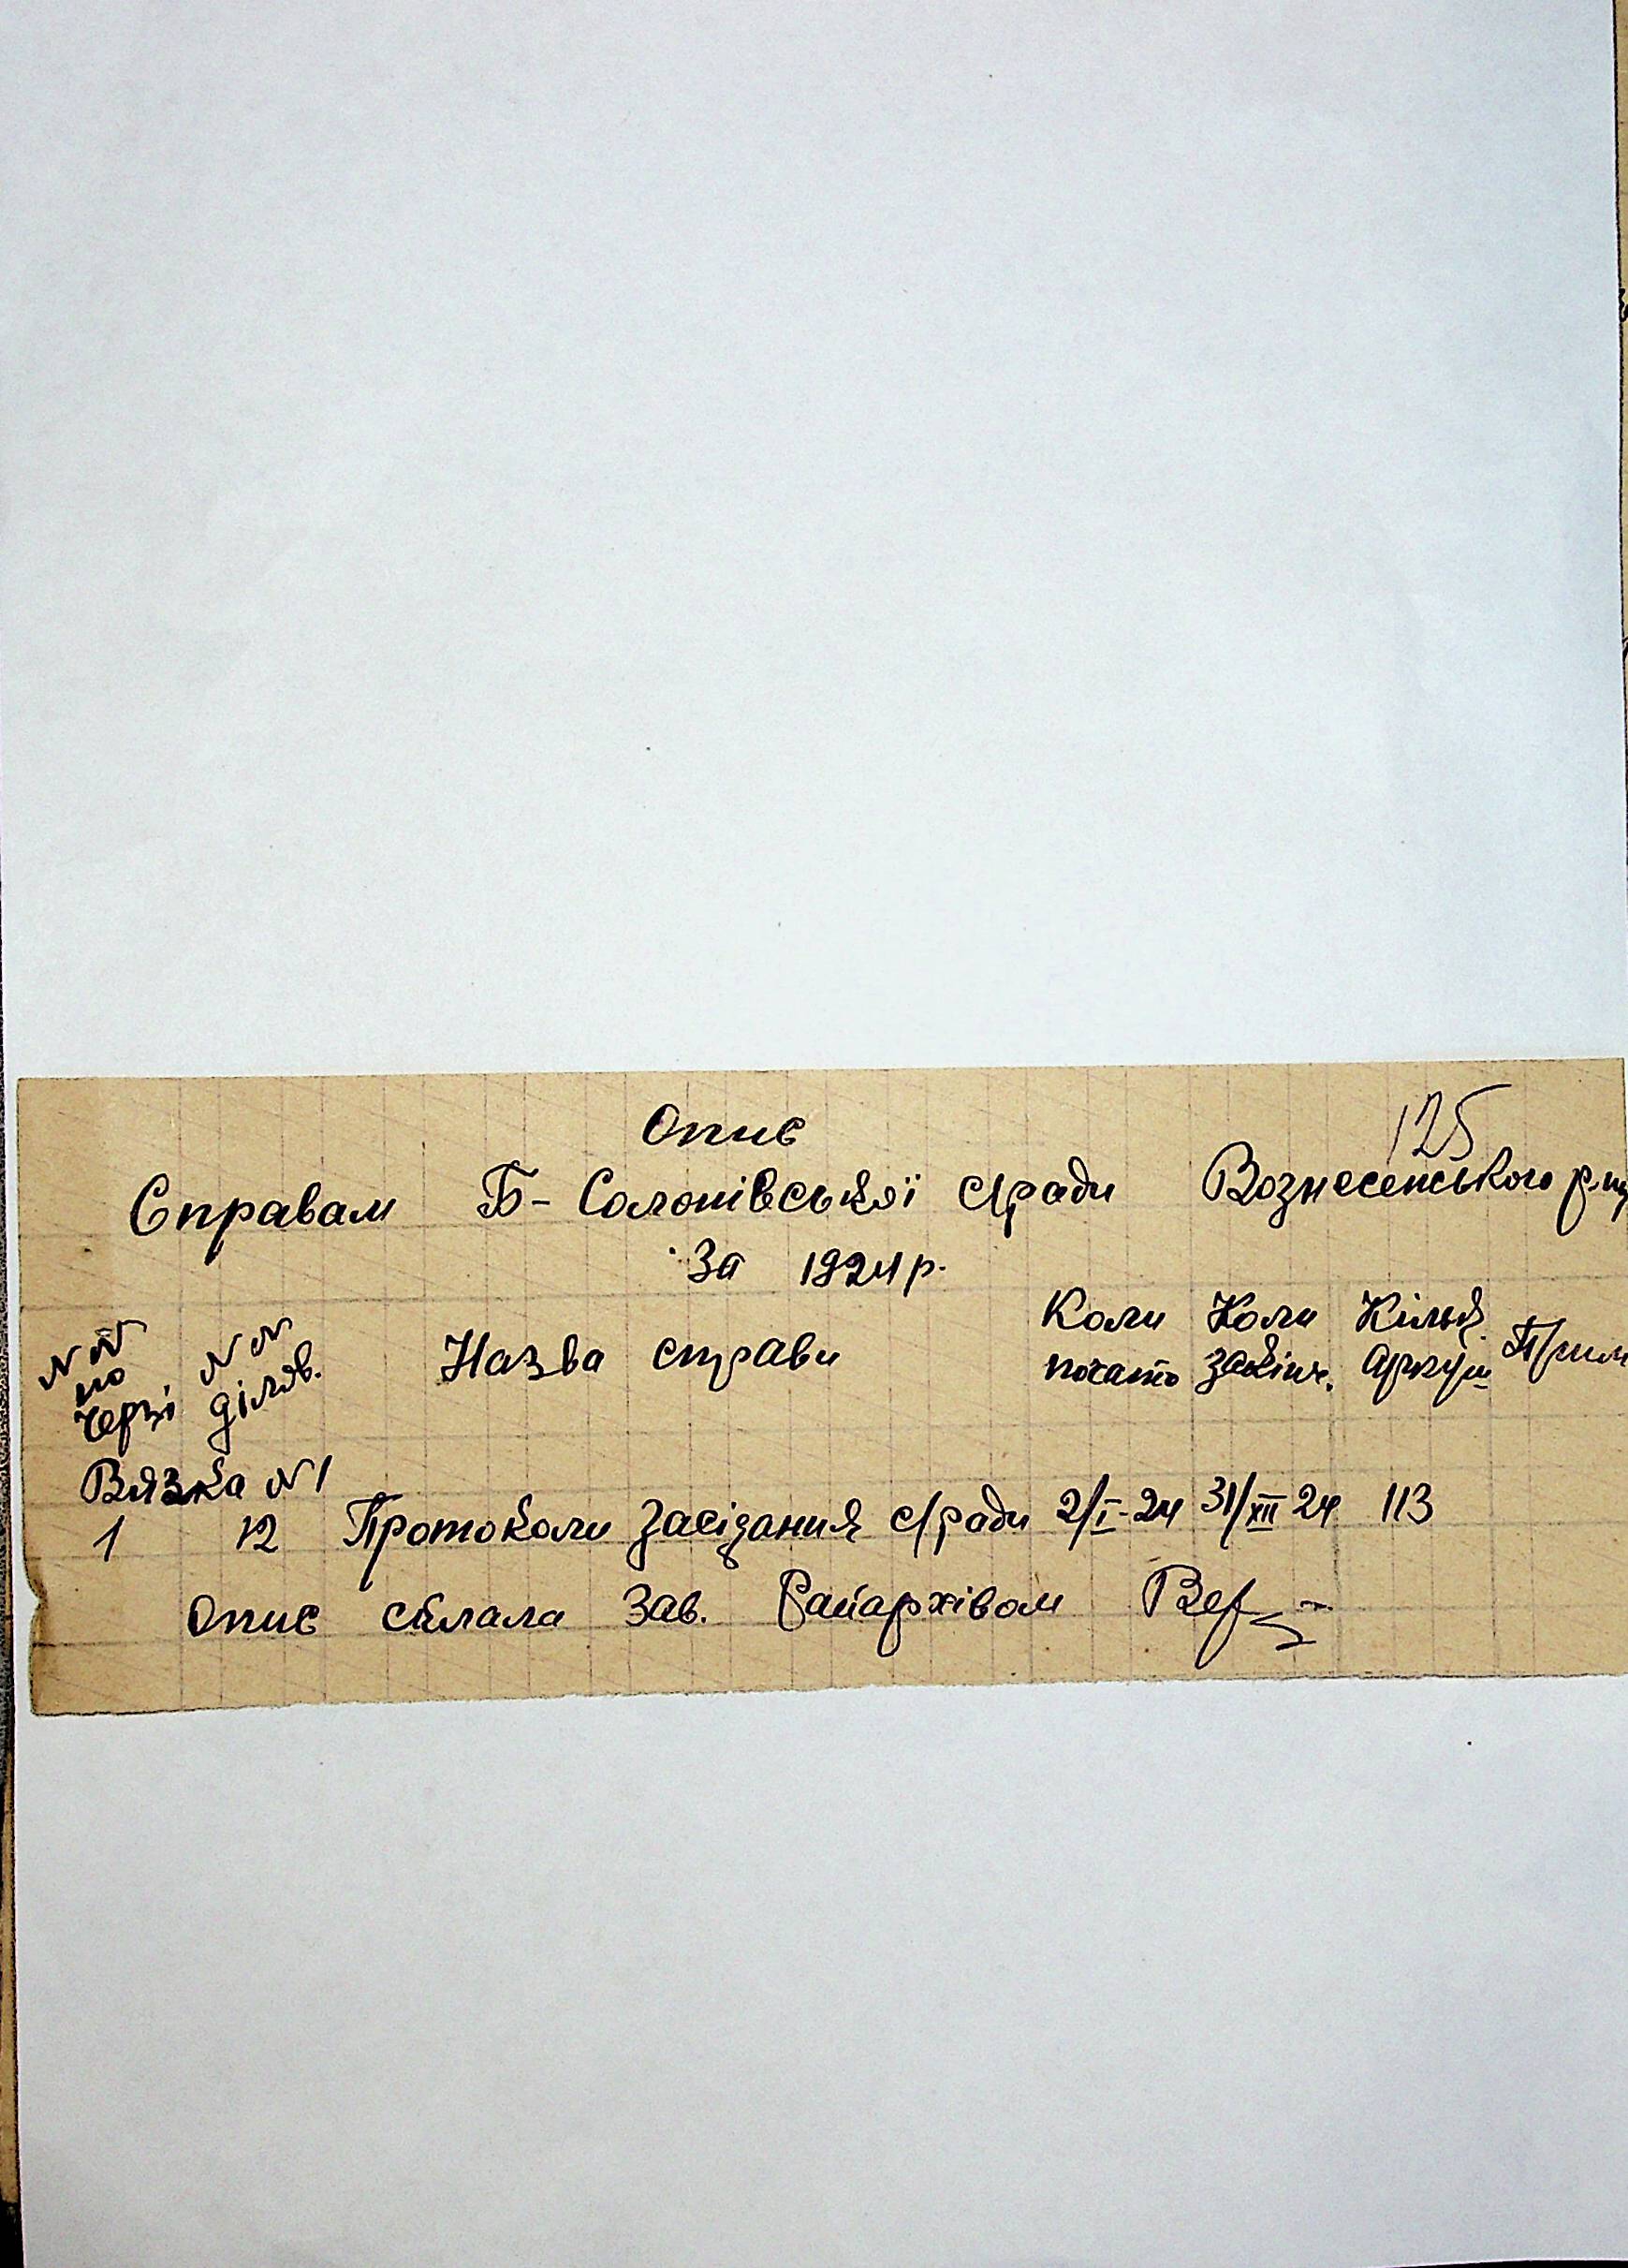 125
Опис
Справам Б-Солонівської с/ради Вознесенського р-ну
За 1924 р.
NN по черзі NN діляв. Назва справи Коли почато Коли закінч. Кільк. аркуш Прим
Вязка N 1
1 12 Протоколи засідания с/ради 2/I-24 31/XII 24 113
Опис склала Зав. Райархівом